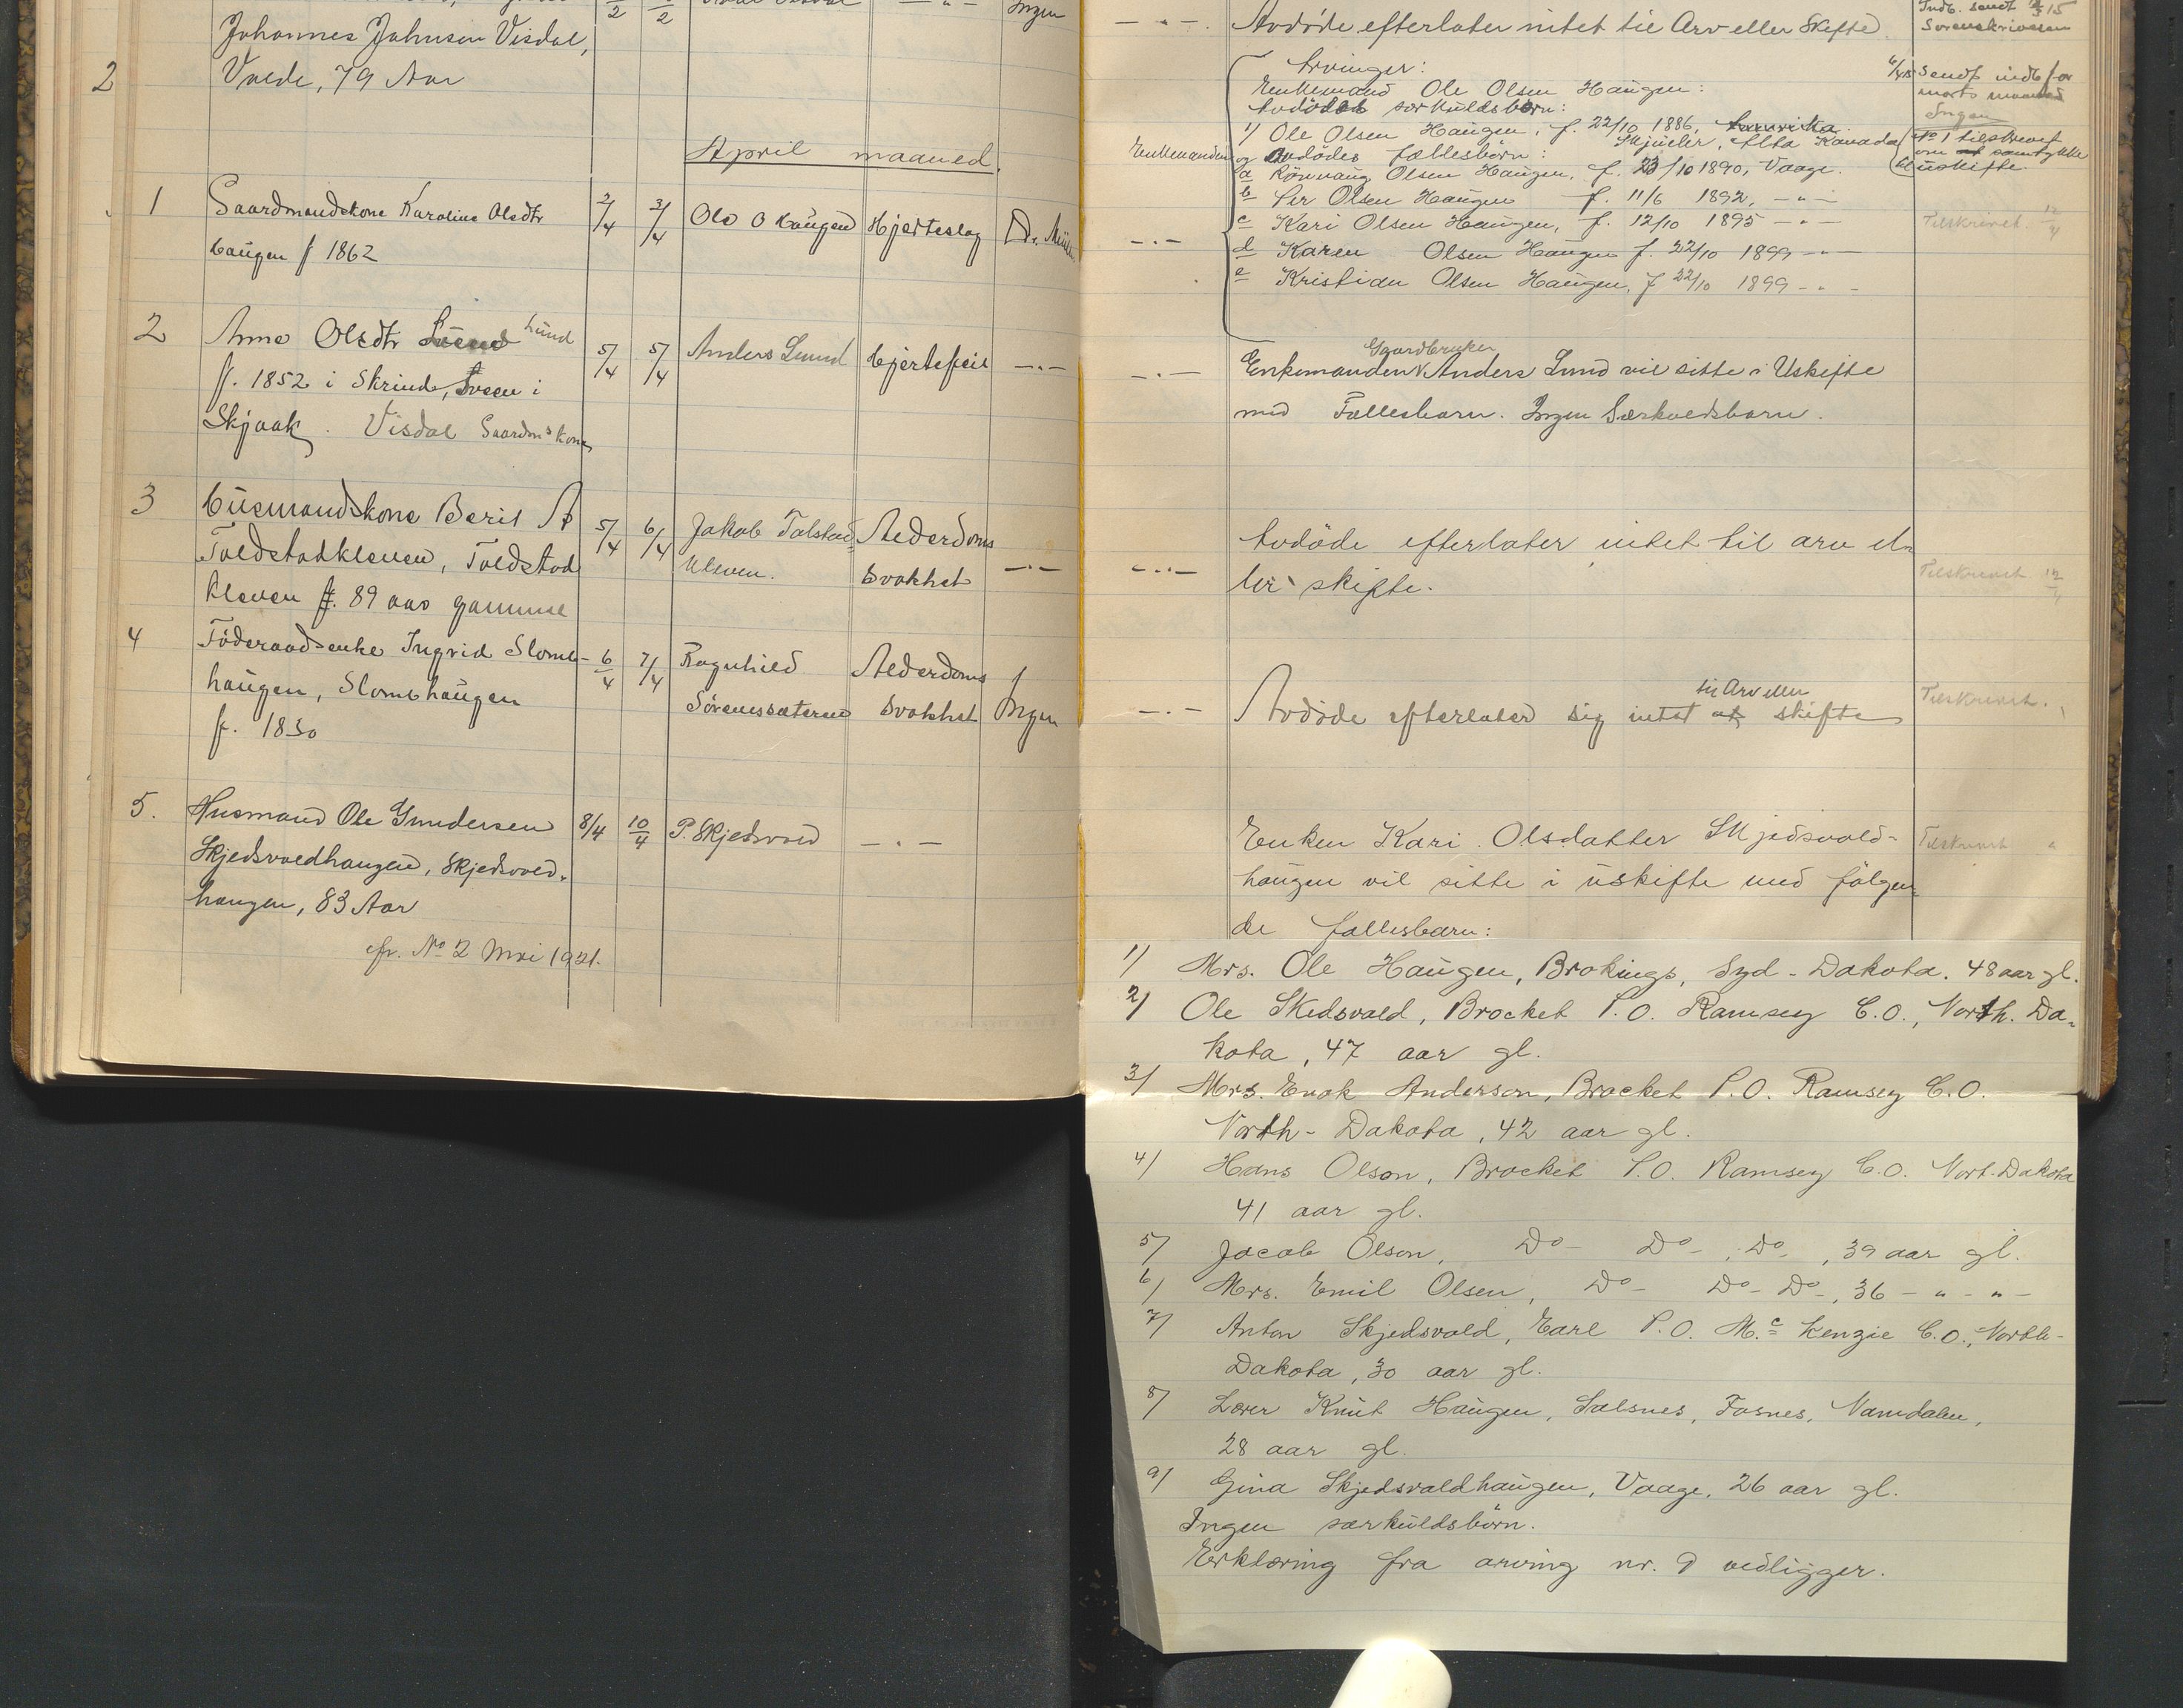 2
Johannes Johnsen Visdal,
Vole, 79 Aar
Ingen
April maaned.
1
Gaardmandskone Karoline Olsdtr
Haugen f 1862
2/4
3/4
Ole O Haugen
Hjerteslag
Dr.
2
Anne Olsdtr Lund
f. 1852 i Skrinde, i
Skjaak. Visdal Gaardmskone
5/4
5/4
Anders Lund
Hjertefeil
— " —
3
Husmandskone Berit
Toldstadkleven, Toldstad
kleven f. 89 aar gammel
5/4
6/4
Jakob Tolstad
kleven.
Alderdoms
svakhet
— " —
4
Föderaadsenke Ingrid Slomb-
haugen, Slombhaugen
f. 1830
6/4
7/4
Ragnhild
Sörenssæteren
Alderdoms
svakhet
Ingen
5.
Husmand Ole Gundersen
Skjedsvoldhaugen, Skjedsvold-
haugen, 83 Aar
8/4
10/4
P. Skjedsvold
— " —
cfr. No 2 Mai 1921.
— " —
Avdöde efterlater intet til Arv eller Skifte
Indb. sendt
Sorenskriveren
Arvinger:
Enkemand Ole Olsen Haugen:
Avdödes særkuldsbörn:
1) Ole Olsen Haugen, f. 22/10 1886, Amerika
Alta Kanada
Enkemanden og avdödes fællesbörn:
a Rönnaug Olsen Haugen, f. 23/10 1890, Vaage.
b Per Olsen Haugen f. 11/6 1892, — " —
c Kari Olsen Haugen, f. 12/10 1895 — " —
d Karen Olsen Haugen f. 22/10 1899 — " —
e Kristian Olsen Haugen, f 22/10 1899 — " —
Sendt indb for
marts maaned
Ingen
No 1 tilskrevet
om samtykke
til uskifte.
Tilskrevet 12/4
— " —
Gaardbruker
Enkemanden Anders Lund vil sitte i Uskifte
med Fællesbarn. Ingen Særkuldsbarn.
— " —
Avdöde efterlater intet til arv el-
ler skifte.
Tilskrevet 12/4
— " —
til Arv eller
Avdöde efterlater sig intet at skifte
Tilskrevet.
Enken Kari Olsdatter Skjedsvold-
haugen vil sitte i uskifte med fölgen-
de fællesbarn:
Tilskrevet "
1) Mrs. Ole Haugen, Brokings, Syd-Dakota. 48 aar gl.
2) Ole Skedsvold, Brocket P.O. Ramsey C.O., North. Da-
kota, 47 aar gl.
3) Mrs. Enok Anderson, Brocket P.O. Ramsey C.O.
North-Dakota, 42 aar gl.
4) Hans Olson, Brocket P.O. Ramsey C.O. Nort-Dakota
41 aar gl.
5) Jacob Olson, Do- Do-, Do-, 39 aar gl.
6) Mrs. Emil Olsen, Do- Do- Do-, 36 - " - " -
7) Anton Skjedsvold, Earl P.O. Mc Kenzie C.O., North-
Dakota, 30 aar gl.
8) Lærer Knut Haugen, Salsnes, Fosnes, Namdalen,
28 aar gl.
9) Gina Skjedsvoldhaugen, Vaage, 26 aar gl.
Ingen særkuldsbörn.
Erklæring fra arving nr. 9 vedligger.